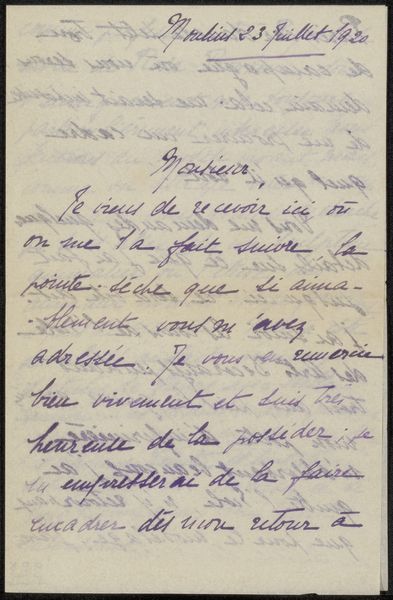 Moulins 23 Juillet 1920
Monsieur,
Je viens de recevoir ici, où
on me l'a fait suivre la
pointe-sèche que si aima-
-blement vous m'avez
adressée. Je vous en remercie
bien vivement et suis très
heureuse de la posséder; je
m'empresserai de la faire
encadrer dès mon retour à